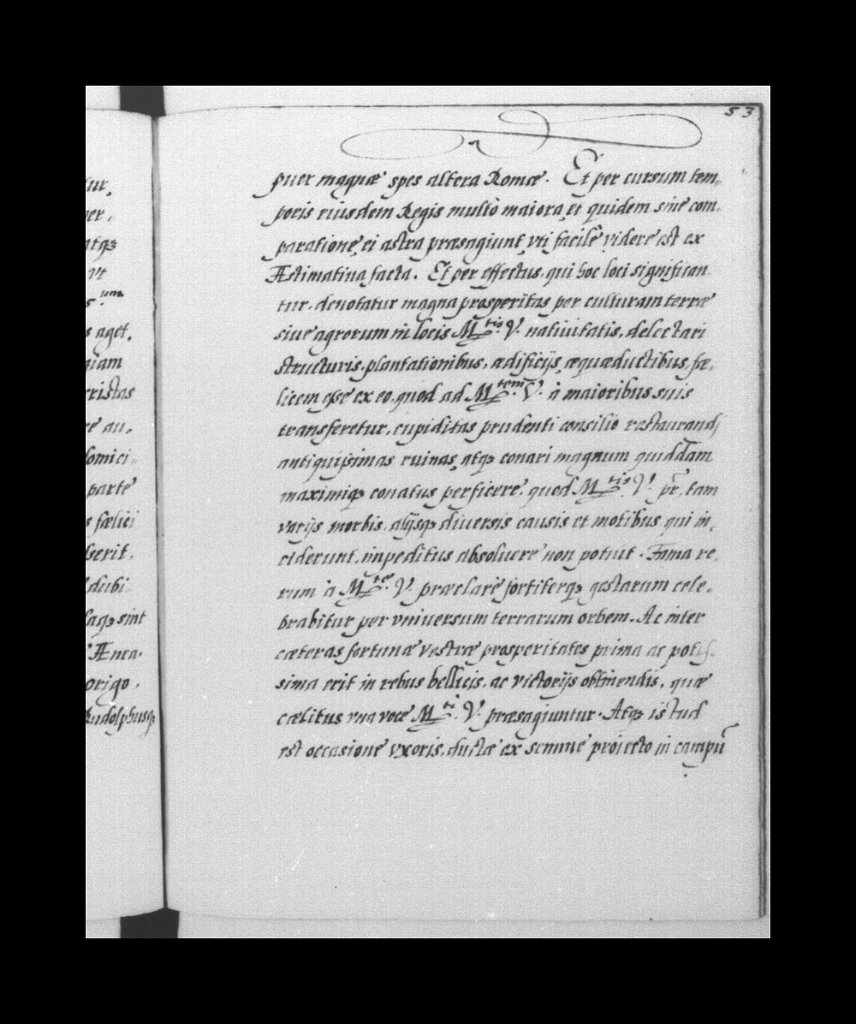 53
tur,
er,
atq3
vt
s um
s aget,
niam
cristas
re au,
domici,
parte
s fælici
serit,
dubi,
aq3 sint
Ænea,
origo,
Rudolphusq3
puer magnæ spes altera Romæ. Et per cursum tem,
poris eiusdem Regis multò maiora, et quidem sine com,
paratione, ei astra præsagiunt, vti facilè videre est ex
Æstimatiua facta. Et per effectus, qui hoc loci significan
tur, denotatur magna prosperitas per culturam terræ
siue agrorum in locis M.tis V. natiuitatis, delectari
structuris, plantationibus, ædificijs, æquæductibus, fæ,
licem esse ex eo, quod ad M.tem V. à maioribus suis
transferetur, cupiditas prudenti consilio restaurandi
antiquissimas ruinas, atq3 conari magnum quiddam
maximiq3 conatus perficere, quod M.tis V. pr̃, tam
varijs morbis, alijsq3 diuersis causis et motibus qui in,
ciderunt, impeditus absoluere non potuit. Fama re,
rum à M.te V. præclarè fortiterq3 gestarum cele,
brabitur per vniuersum terrarum orbem. Ac inter
cæteras fortunæ vestræ prosperitates prima ac potis,
sima erit in rebus bellicis, ac victorijs obtinendis, quæ
cælitus vna voce M.ti V. præsagiuntur. Atq3 istud
est occasione vxoris, ductæ ex semine proiecto in campū